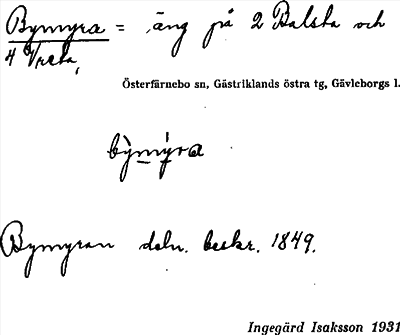 Bymyra = äng på 2 Balsta och
4 Vreta,
Österfärnebo sn, Gästriklands östra tg, Gävleborgs l.
by̆my̆ra
Bymyran deln. beskr. 1849.
Ingegärd Isaksson 1931